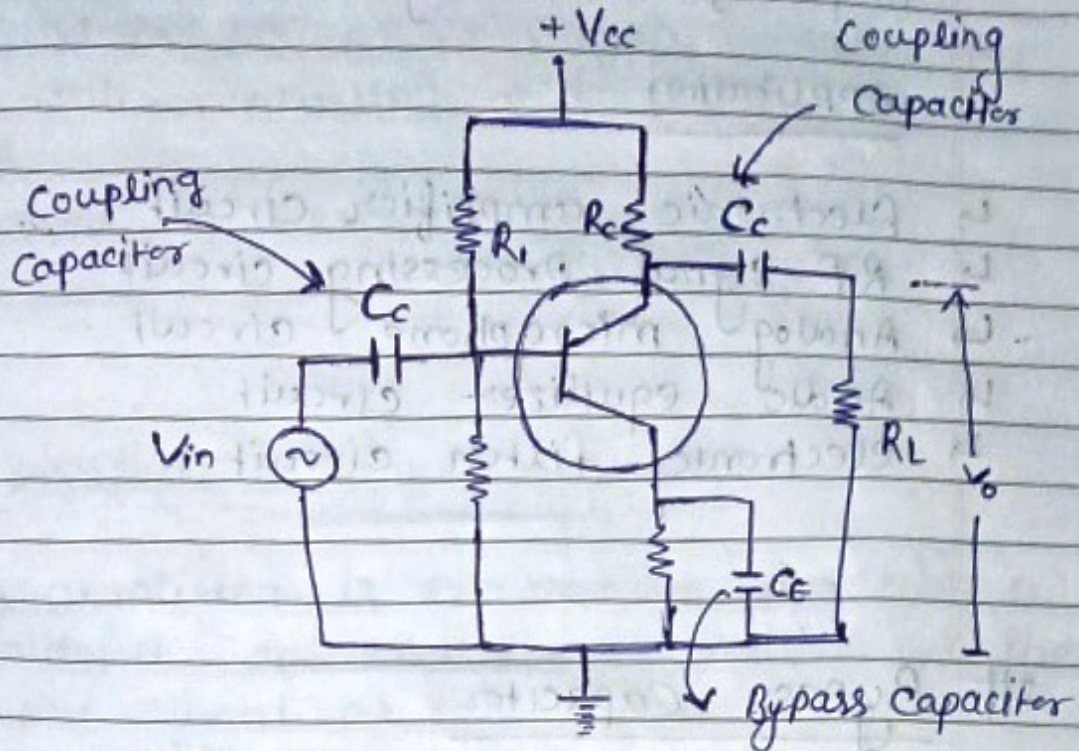 + Vcc
Coupling
Capacitor
Coupling
Capacitor
R1
Rc
Cc
Cc
Vin
RL
Vo
CE
Bypass Capacitor